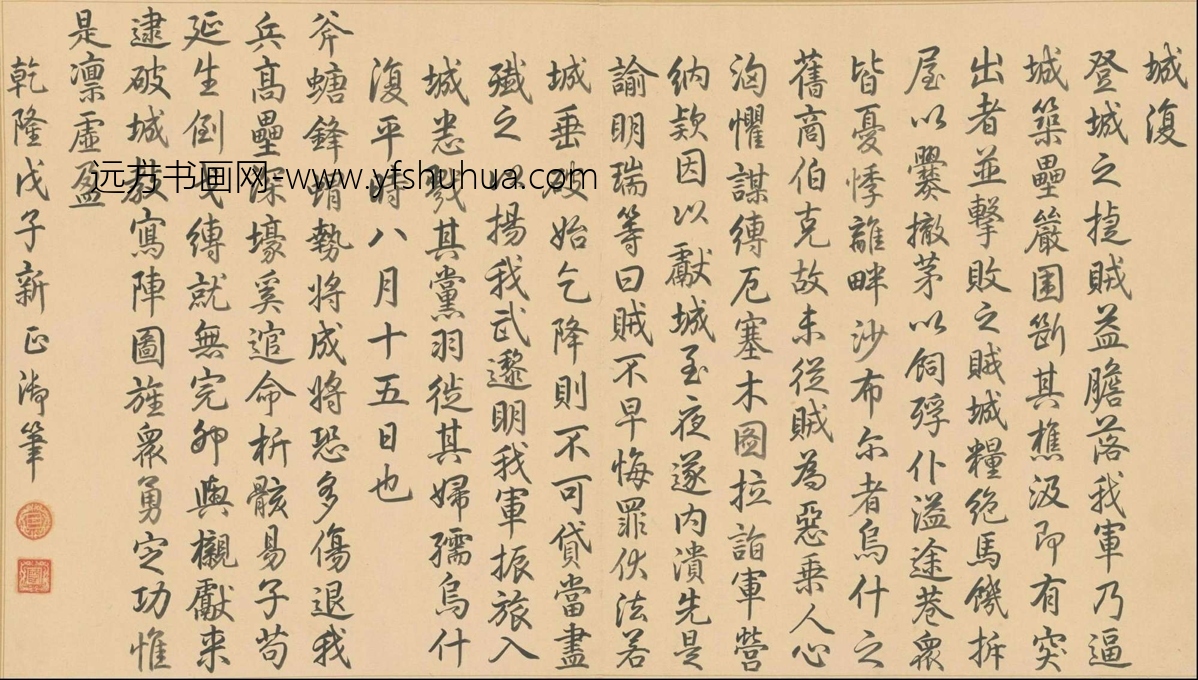 城復
登城之捷賊益膽落我軍乃逼
城築壘嚴圍斷其樵汲即有突
出者並擊敗之賊城糧絶馬饑拆
屋以爨撤茅以飼殍仆溢途巷衆
皆憂悸離畔沙布尔者烏什之
舊商伯克故未從賊為惡乗人心
洶懼謀縛厄塞木圖拉詣軍營
納欵因以獻城至夜遂内潰先是
諭明瑞等曰賊不早悔罪伏法若
城垂破始乞降則不可貸當盡
殲之以揚我武遲明我軍振旅入
城悉戮其黨羽徙其婦孺烏什
復平時八月十五日也
斧螗鋒蝟勢將成將恐多傷退我
兵高壘深壕奚逭命析骸易子苟
延生倒戈縛就無完卵輿櫬獻来
逮破城敬寫陣圖旌衆勇定功惟
是凛虚盈
乾隆戊子新正御筆
远方书画网-www.yfshuhua.com